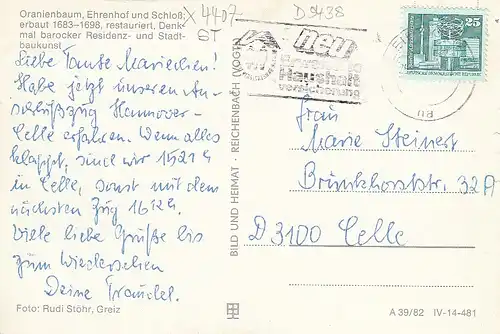 Oranienbaum, Ehrenhof und Schloß,
erbaut 1683–1698, restauriert, Denk-
mal barocker Residenz- und Stadt-
baukunst
X 4407
ST
D 9438
Liebe Tante Mariechen!
Habe jetzt unseren An-
schlußzug Hannover-
Celle erfahren. Wenn alles
klappt, sind wir 15²¹ h
in Celle, sonst mit dem
nächsten Zug 16¹² h.
Viele liebe Grüße bis
zum Wiedersehen
Deine Traudel.
Foto: Rudi Stöhr, Greiz
BILD UND HEIMAT · REICHENBACH (VOGTL)
neu
Haushalt
versicherung
25
DDR
Frau
Marie Steinert
Brunkhorststr. 32A
D 3100 Celle
A 39/82 IV-14-481